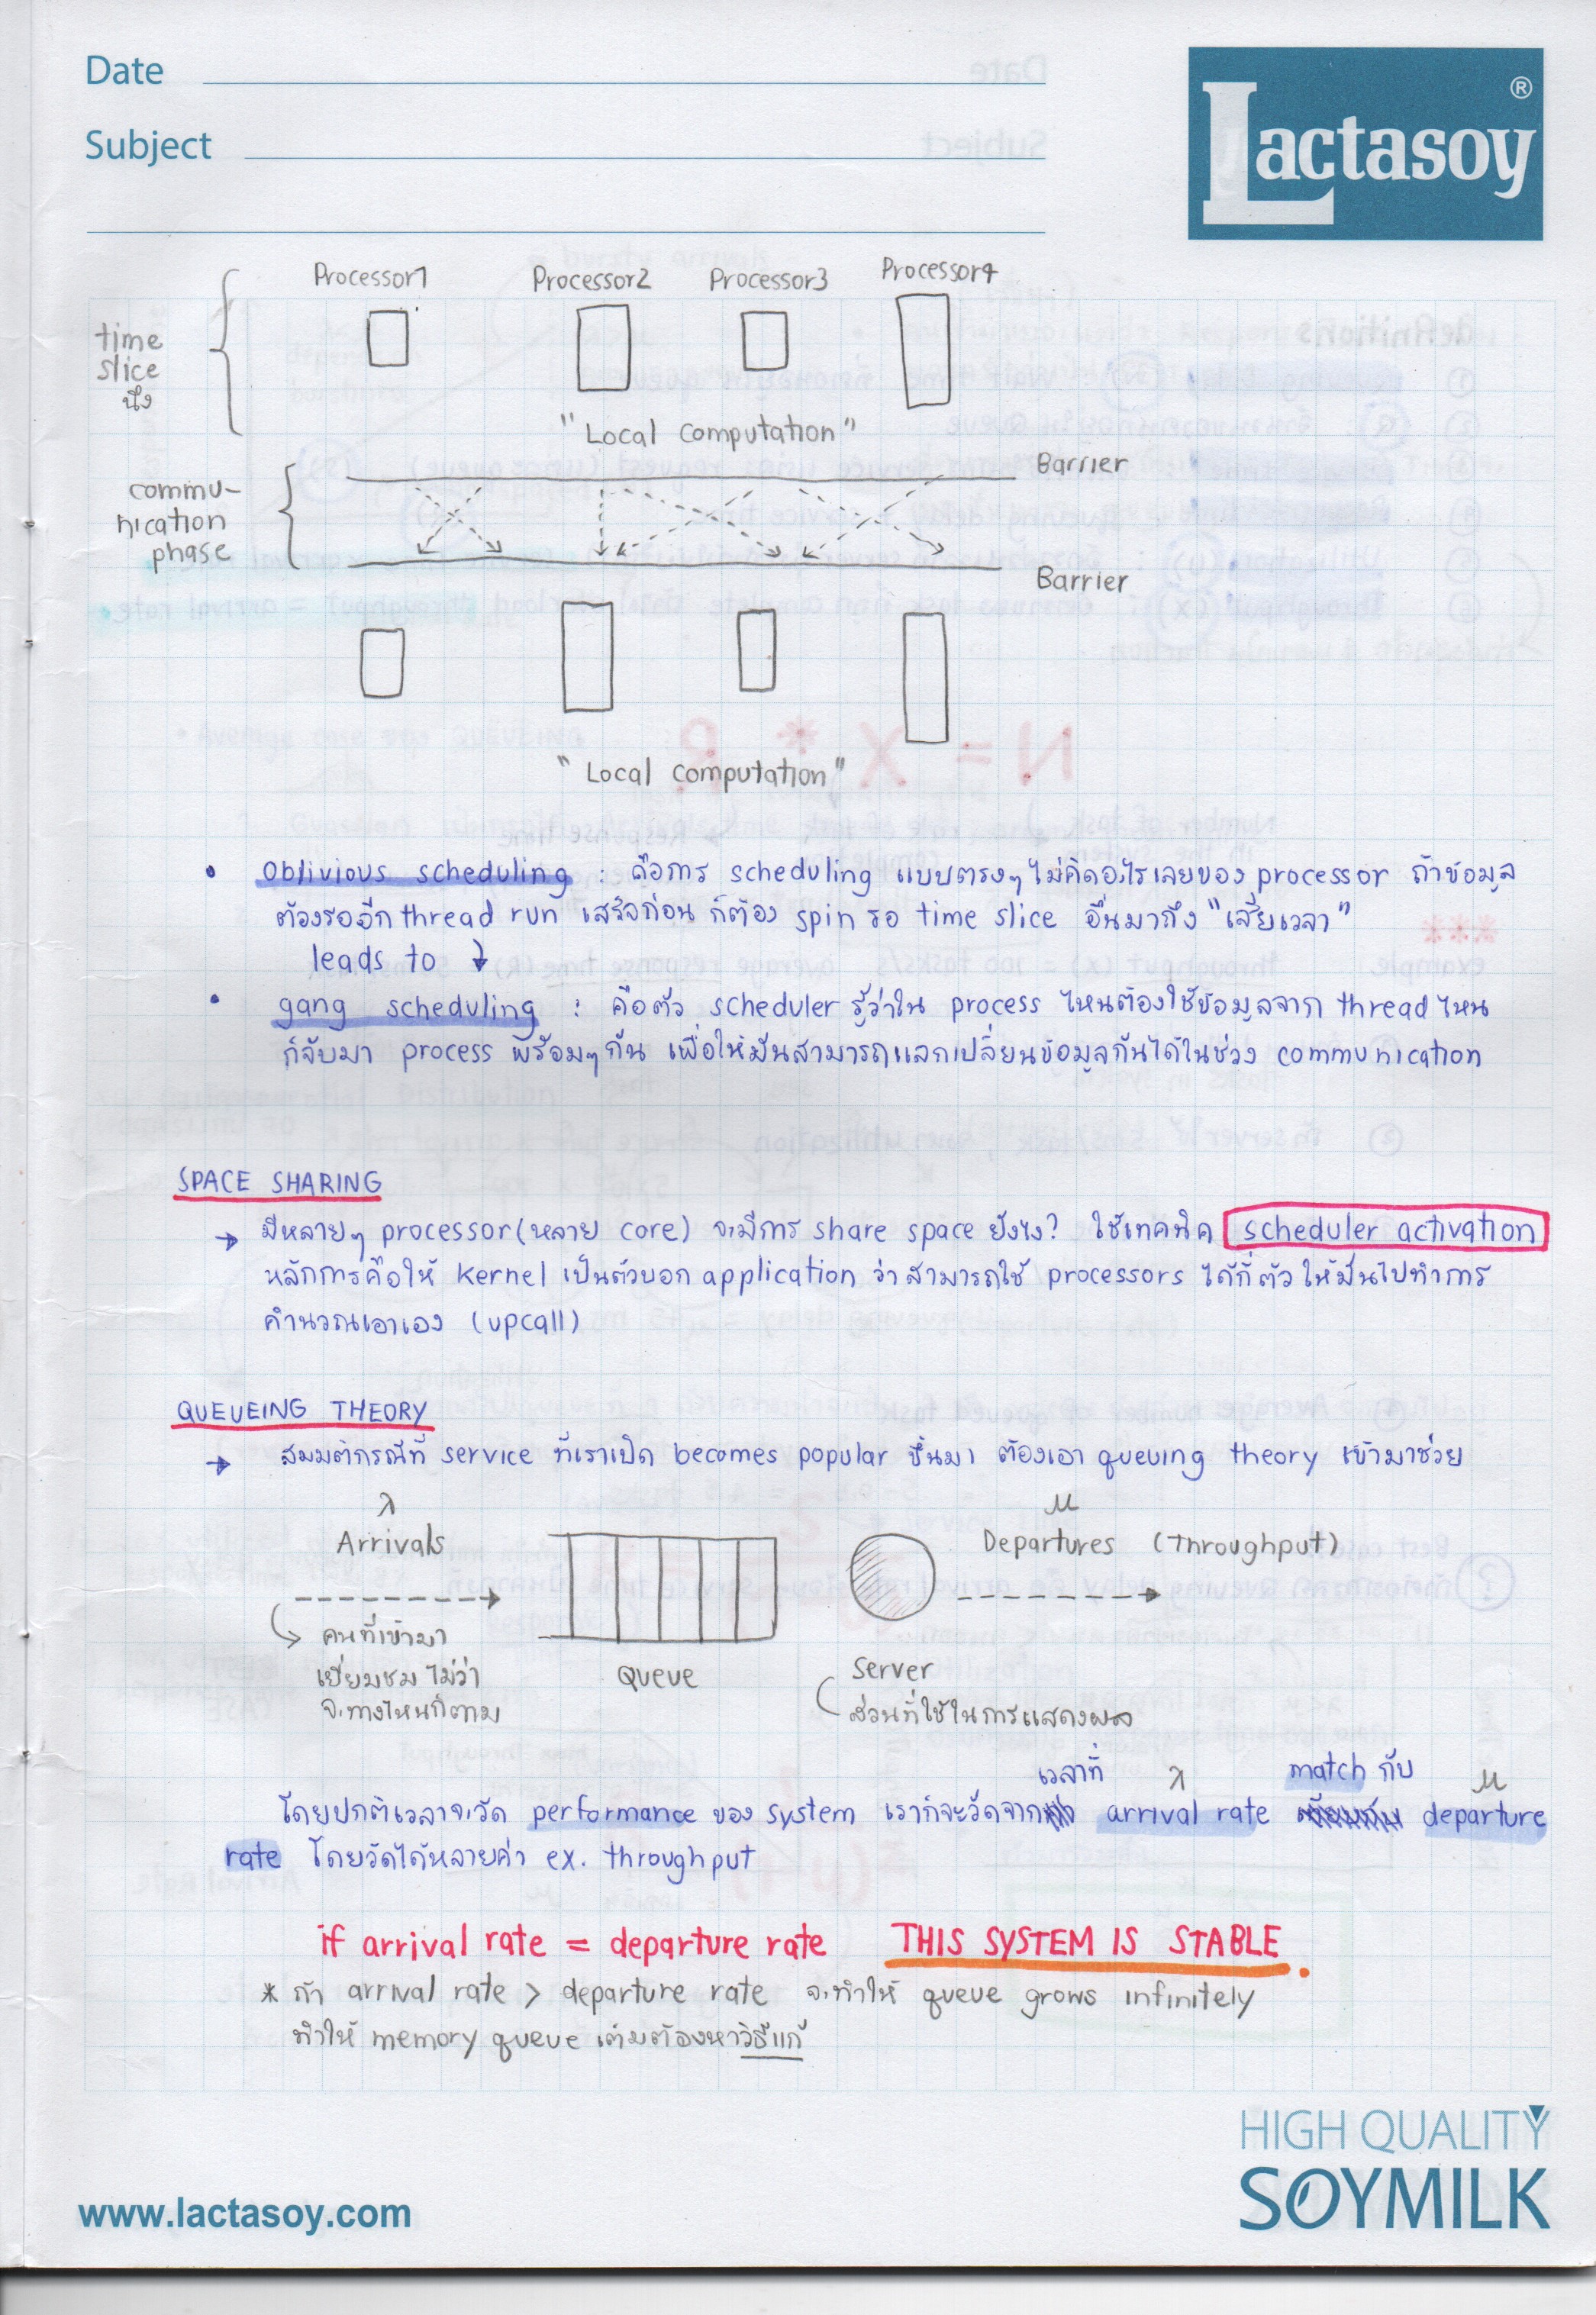 Date
Subject
Lactasoy ®
Processor1 Processor2 Processor3 Processor4
time
slice
นึง
"Local computation"
Barrier
commu-
nication
phase
Barrier
"Local computation"
• oblivious scheduling : คือการ scheduling แบบตรงๆ ไม่คิดอะไรเลยของ processor ถ้าข้อมูล
ต้องรออีก thread run เสร็จก่อน ก็ต้อง spin รอ time slice อื่นมาถึง "เสียเวลา"
leads to ↓
• gang scheduling : คือตัว scheduler รู้ว่าใน process ไหนต้องใช้ข้อมูลจาก thread ไหน
ก็จับมา process พร้อมๆ กัน เพื่อให้มันสามารถแลกเปลี่ยนข้อมูลกันได้ในช่วง communication
SPACE SHARING
→ มีหลายๆ processor (หลาย core) จะมีการ share space ยังไง? ใช้เทคนิค scheduler activation
หลักการคือให้ kernel เป็นตัวบอก application ว่าสามารถใช้ processors ได้กี่ตัว ให้มันไปทำการ
คำนวณเอาเอง (upcall)
QUEUEING THEORY
→ สมมติกรณีที่ service ที่เราเปิด becomes popular ขึ้นมา ต้องเอา queuing theory เข้ามาช่วย
λ μ
Arrivals Departures (Throughput)
คนที่เข้ามา
เยี่ยมชม ไม่ว่า
จะทางไหนก็ตาม
Queue
Server
ส่วนที่ใช้ในการแสดงผล
เวลาที่ λ match กับ μ
โดยปกติเวลาจะวัด performance ของ system เราก็จะวัดจาก arrival rate departure
rate โดยวัดได้หลายค่า ex. throughput
if arrival rate = departure rate THIS SYSTEM IS STABLE.
* ถ้า arrival rate > departure rate จะทำให้ queue grows infinitely
ทำให้ memory queue เต็มต้องหาวิธีแก้
HIGH QUALITY
SOYMILK
www.lactasoy.com